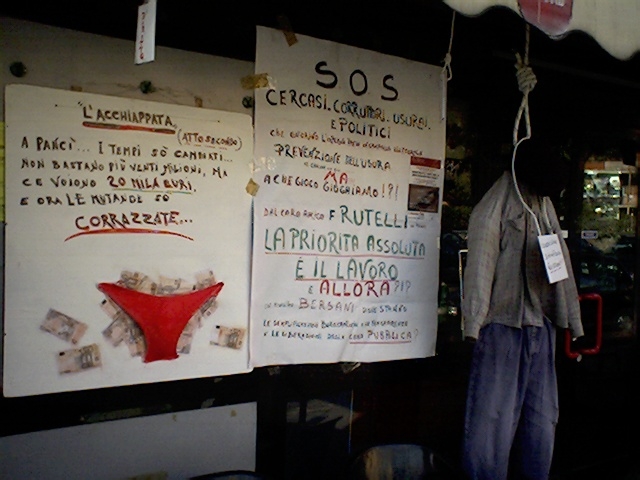 "L'ACCHIAPPATA"
(ATTO SECONDO)
A PANCÌ... I TEMPI SÒ CAMBIATI...
NON BASTANO PIÙ VENTI MILIONI, MA
CE VOIONO 20 MILA EURI,
E ORA LE MUTANDE SÒ
CORRAZZATE...
S O S
CERCASI, CORRUTTORI, USURAI,
E POLITICI
PREVENZIONE DELL'USURA
MA
A CHE GIOCO GIOCHIAMO!?!
DAL CARO AMICO F RUTELLI
LA PRIORITA ASSOLUTA
È IL LAVORO
E ALLORA?!?
BERSANI
E LE LIBERAZIONI DELLA COSA PUBBLICA?